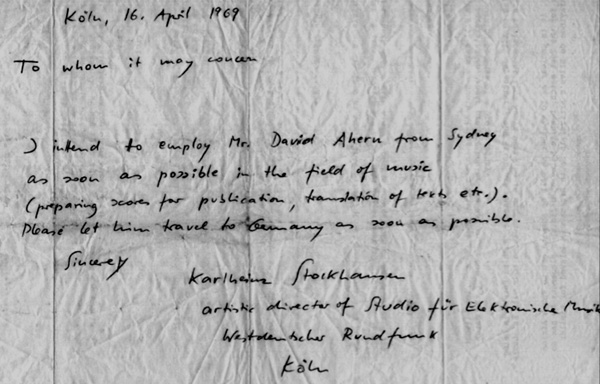 Köln, 16. April 1969
To whom it may concern
I intend to employ Mr. David Ahern from Sydney
as soon as possible in the field of music
(preparing scores for publication, translation of texts etc.).
Please let him travel to Germany as soon as possible.
Sincerely
Karlheinz Stockhausen
artistic director of Studio für Elektronische Musik
Westdeutscher Rundfunk
Köln